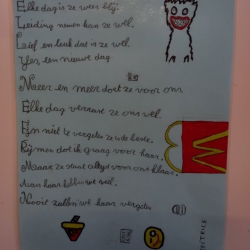 Elke dag is ze weer blij.
Leiding nemen kan ze wel.
Lief en leuk dat is ze wel.
Yes, een nieuwe dag.
Meer en meer doet ze voor ons
Elke dag verrast ze ons wel.
En niet te vergeten ze is de beste.
Rijmen doet ik graag voor haar.
Maar ze staat altijd voor ons klaar.
Aan haar hebben we veel.
Nooit zullen we haar vergeten